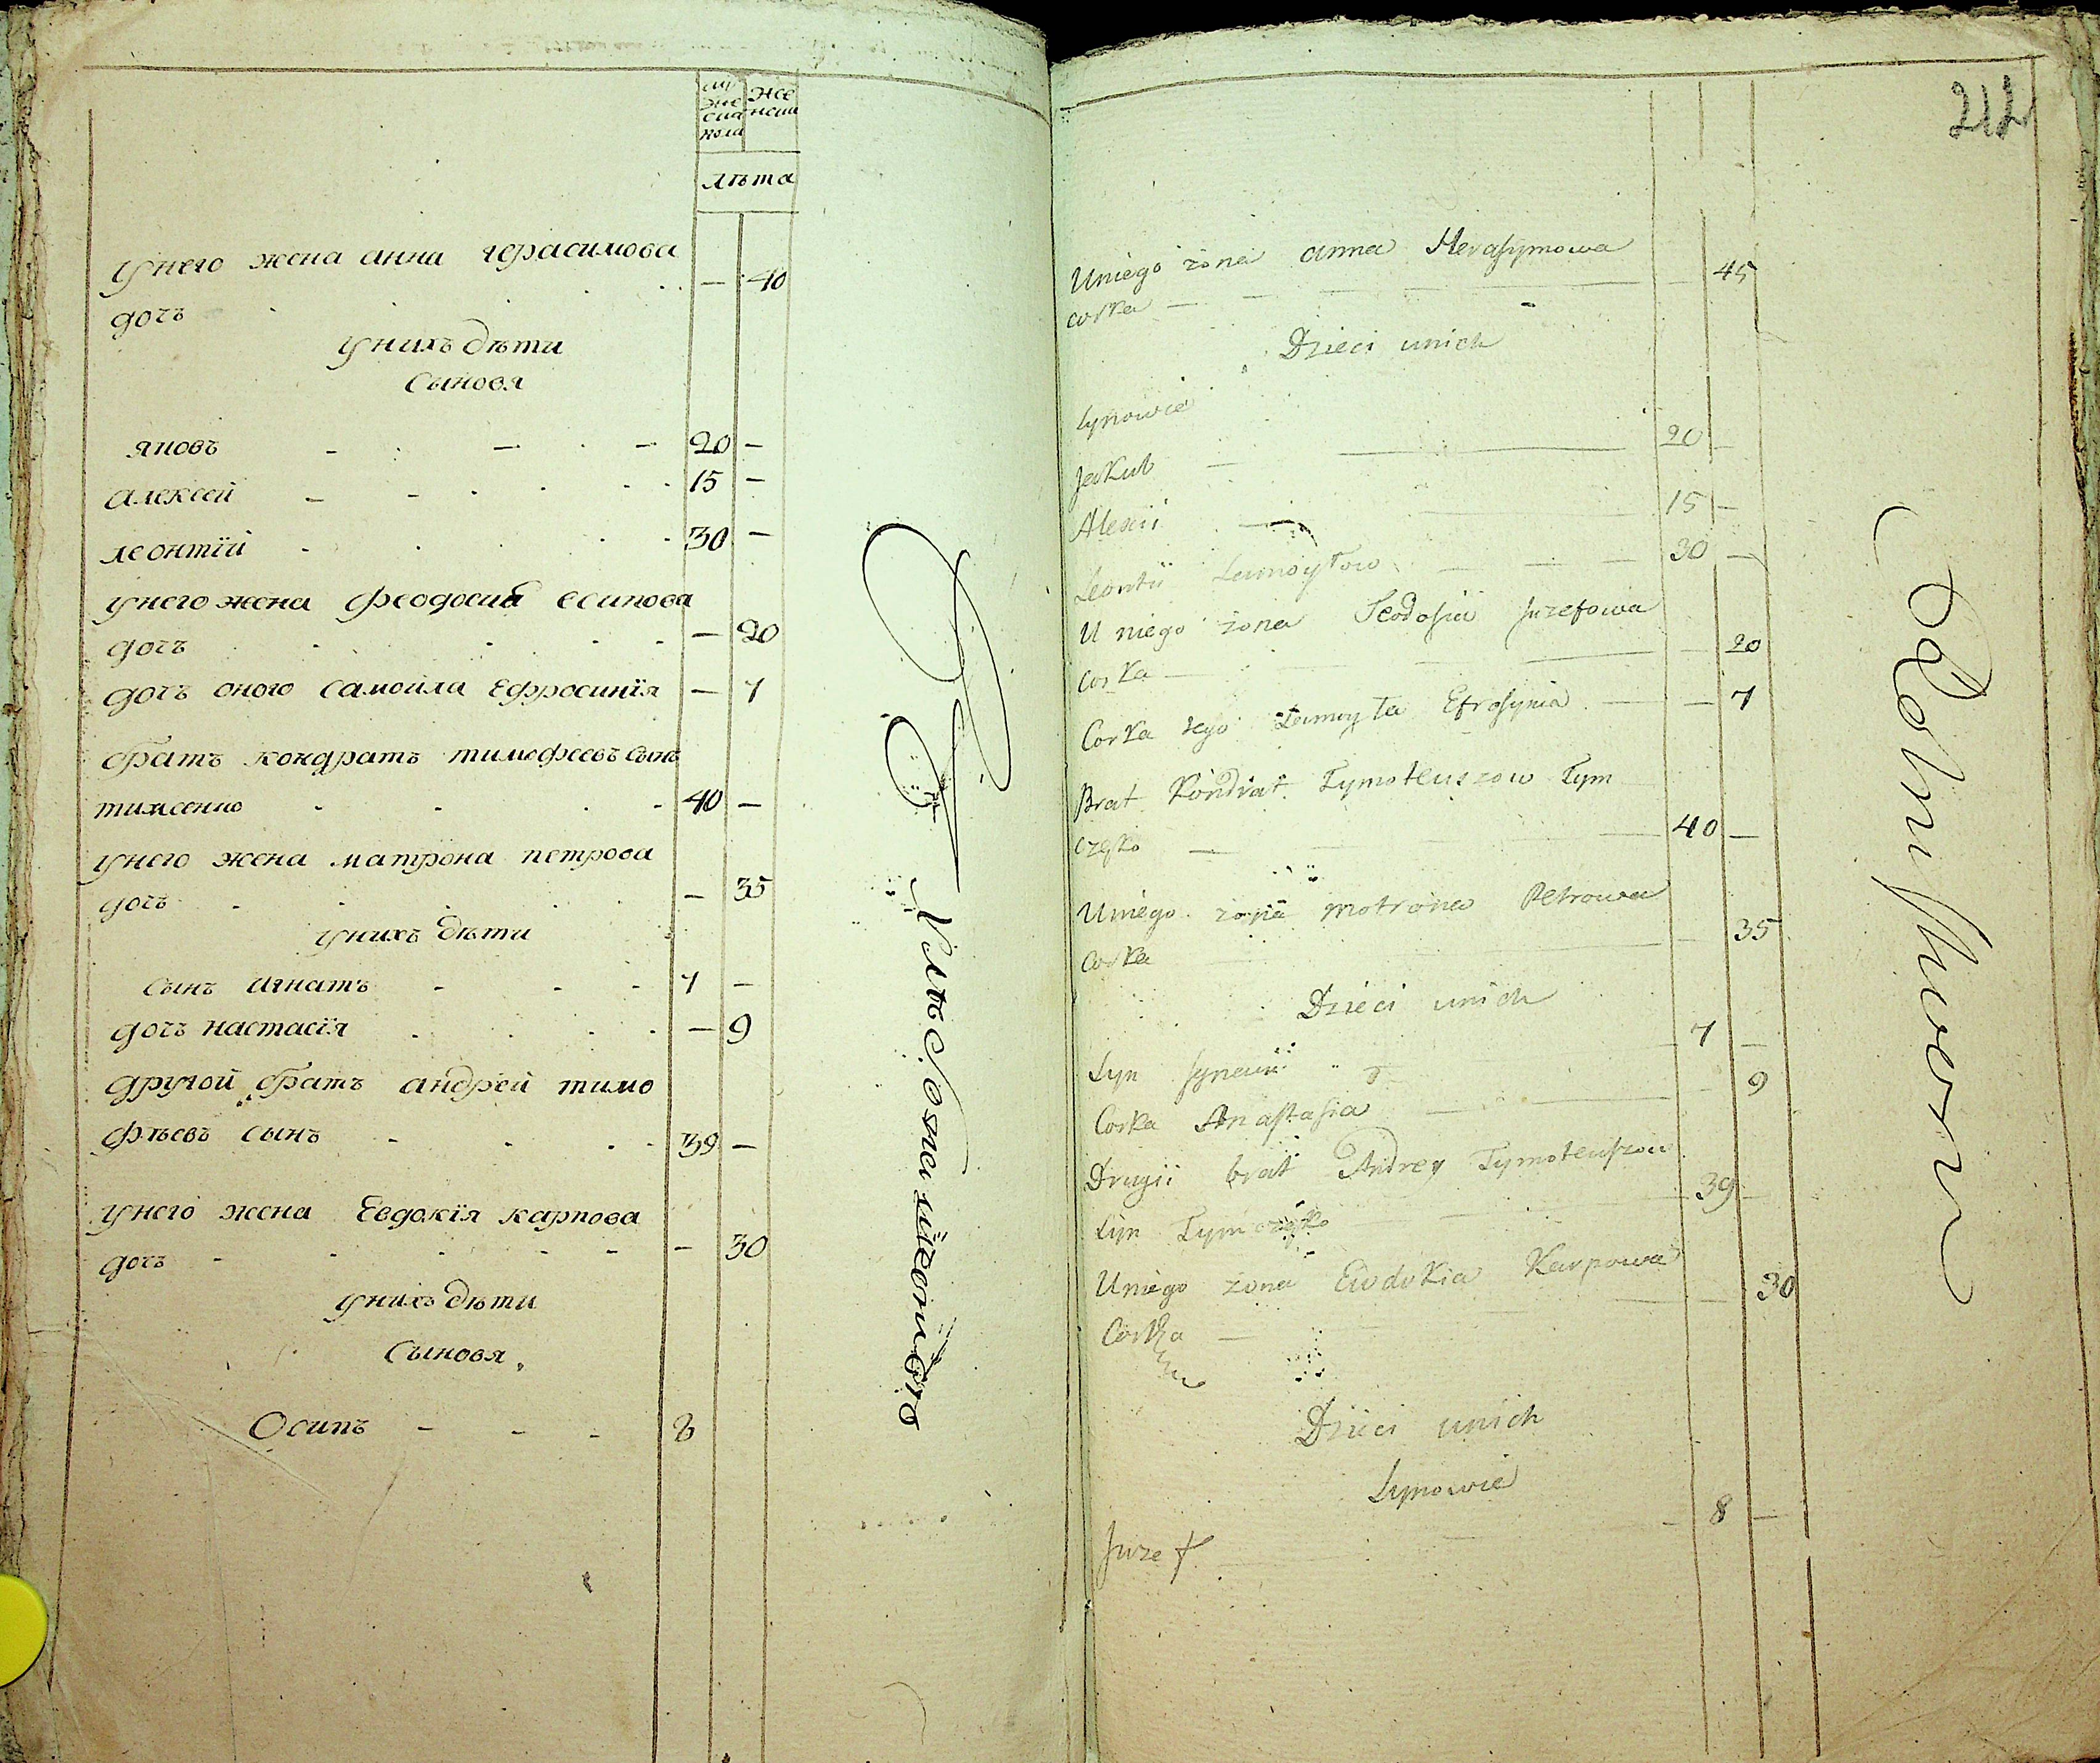 му
же
ска
пола
же
нска
лѣта
у него жена анна герасимова
дочь - 40
у нихъ дѣти
сыновя
яковъ 20 -
алексей 15 -
леонтїй 30 -
у него жена феодосиа есипова
дочь - 20
дочь оного самойла ефросинїя - 7
братъ кондратъ тимофеевъ сынъ
тимченко 40 -
у него жена матрона петрова
дочь - 35
у нихъ дѣти
сынъ игнатъ 7 -
дочь настасїя - 9
другой братъ андрей тимо
фѣевъ сынъ 39 -
у него жена Евдокїя карпова
дочь - 30
у нихъ дѣти
Сыновя
Осипъ 8
212
Uniego żona anna Herasymowa
corka 45
Dzieci unich
Synowie
Jakub 20 -
Alexii 15 -
Leontii Samoyłow 30 -
U niego żona Teodosia Juzefowa
corka - 20
Corka tego Samoyła Efrosynia - 7
Brat Kondrat Tymoteuszow Tym
częko 40 -
Uniego żona motrona Petrowa
corka - 35
Dzieci unich
Syn 7 -
Corka Anastasia - 9
Drugii brat Andrey Tymoteuszow
Syn Tymczęko 39 -
Uniego żona Ewdokia Karpowa
Corka - 30
Dzieci unich
Synowie
Juzef 8 -